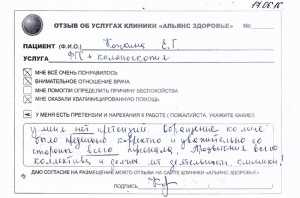 14.06.16
ОТЗЫВ ОБ УСЛУГАХ КЛИНИКИ «АЛЬЯНС ЗДОРОВЬЕ» №
ПАЦИЕНТ (Ф.И.О.) Е.Г.
УСЛУГА + колоноскопия
МНЕ ВСЁ ОЧЕНЬ ПОНРАВИЛОСЬ
ВНИМАТЕЛЬНОЕ ОТНОШЕНИЕ ВРАЧА
МНЕ ПОМОГЛИ ОПРЕДЕЛИТЬ ПРИЧИНУ БЕСПОКОЙСТВА
МНЕ ОКАЗАЛИ КВАЛИФИЦИРОВАННУЮ ПОМОЩЬ
У МЕНЯ ЕСТЬ ПРЕТЕНЗИИ И НАРЕКАНИЯ К РАБОТЕ ( ПОЖАЛУЙСТА, УКАЖИТЕ КАКИЕ)
У меня нет претензий Обращение ко мне
было предельно корректно и уважительно со
стороны всего персонала. Процветания всего
коллектива и долгих лет деятельности клиники!
ДАЮ СОГЛАСИЕ НА РАЗМЕЩЕНИЕ МОЕГО ОТЗЫВА НА САЙТЕ КЛИНИКИ «АЛЬЯНС ЗДОРОВЬЕ»
ПОДПИСЬ